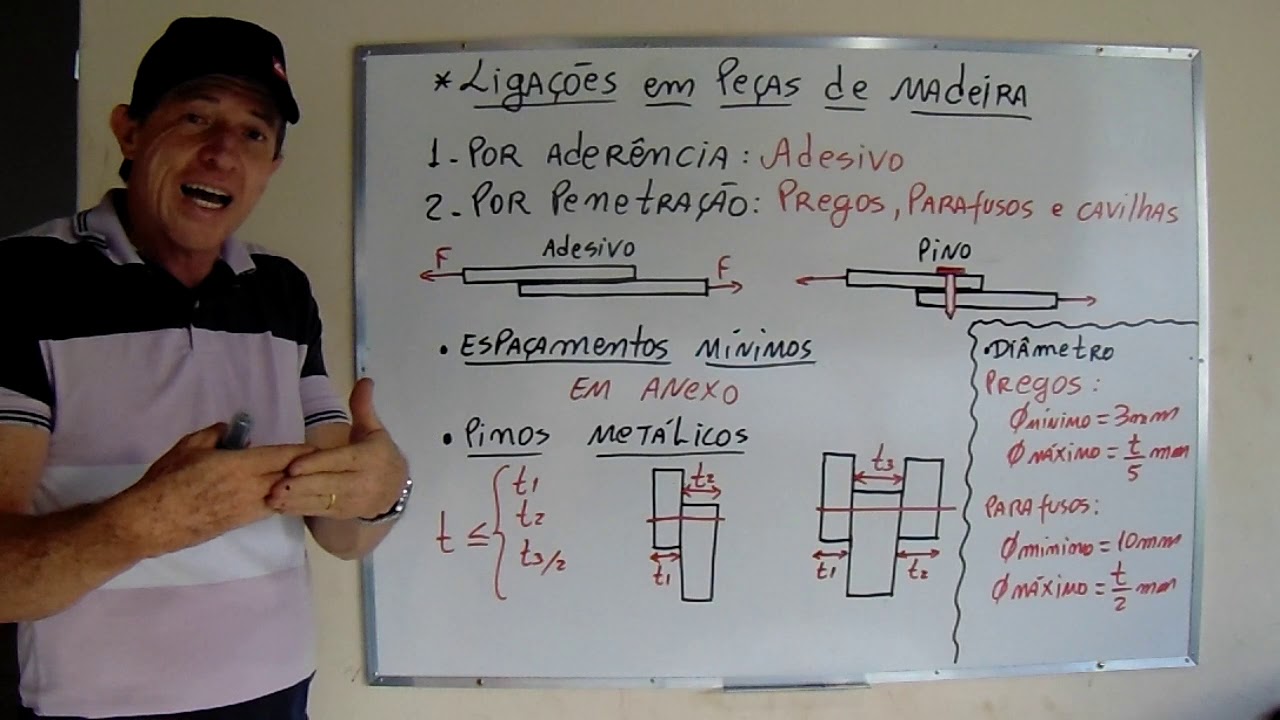 * Ligações em Peças de Madeira
1- Por Aderência: Adesivo
2- Por Penetração: Pregos, Parafusos e Cavilhas
F Adesivo F
Pino
• Espaçamentos Mínimos
Em Anexo
• Pinos Metálicos
t ≤ { t1
t2
t3/2
t2
t1
t3
t1 t2
• Diâmetro
Pregos:
Ø mínimo = 3mm
Ø máximo = t/5 mm
Parafusos:
Ø minimo = 10mm
Ø máximo = t/2 mm